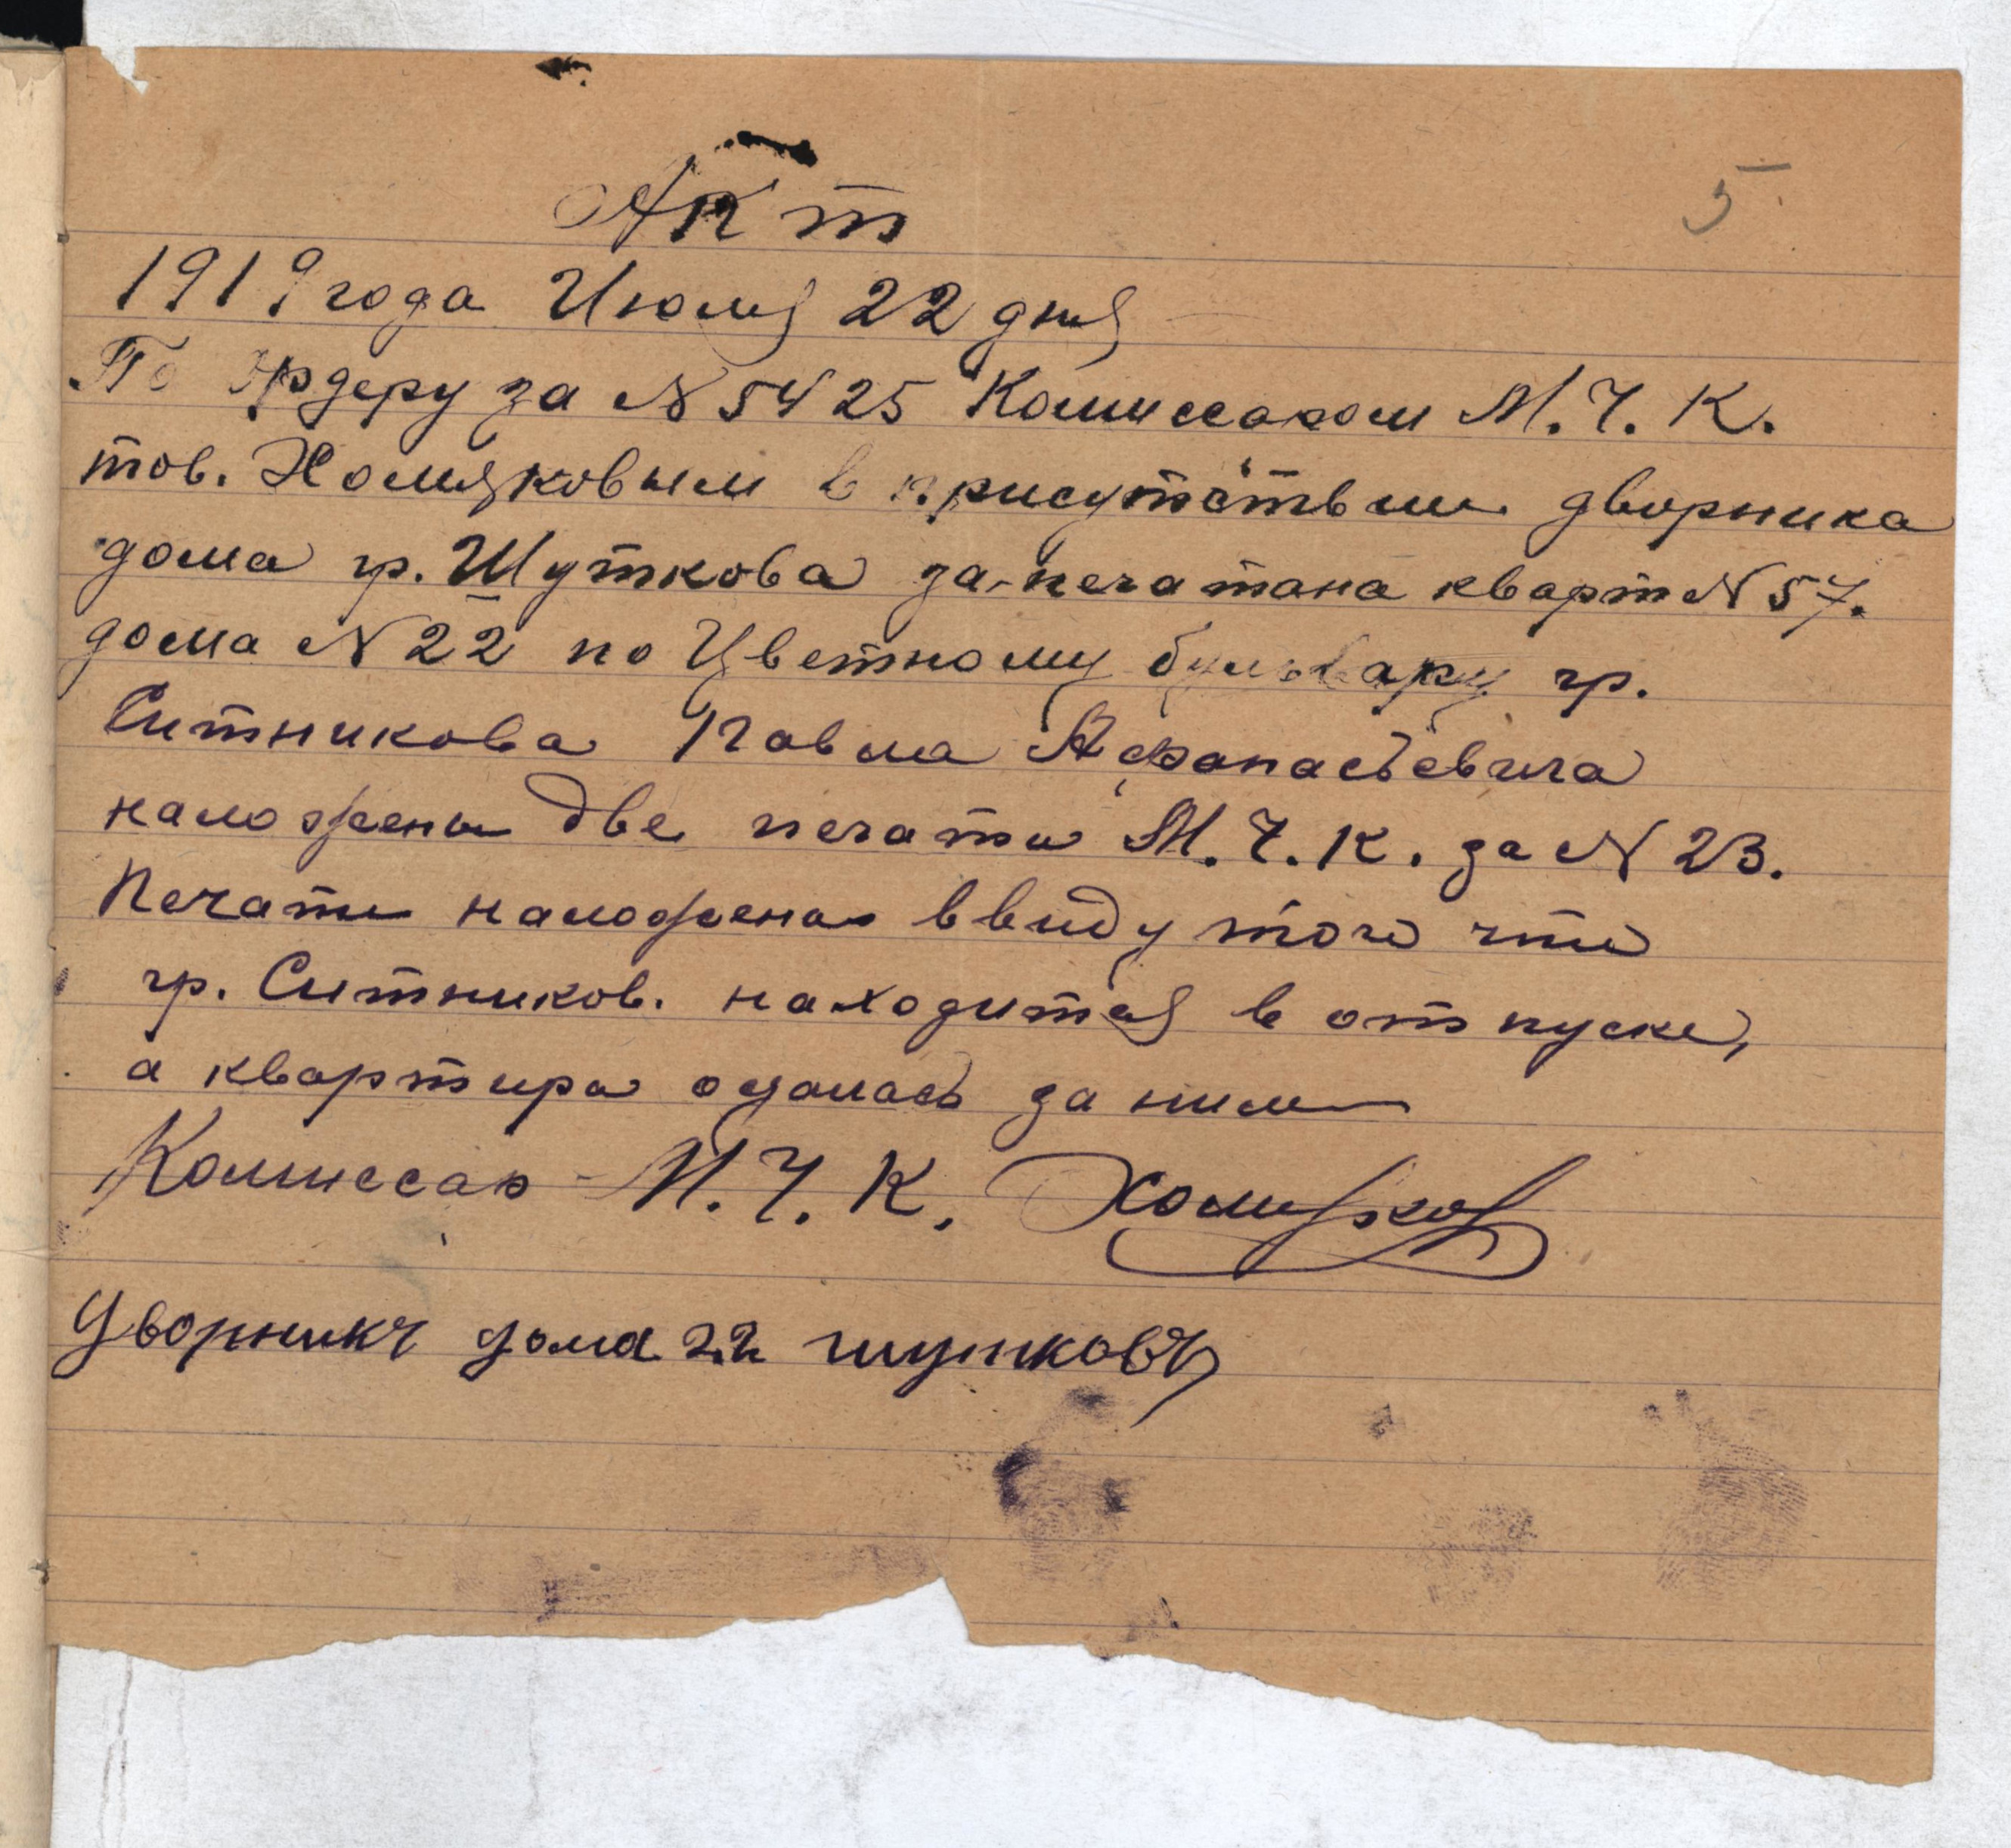 5
Акт
1919 года Июля 22 дня
По Ордеру за N 5425 Комиссаром М.Ч.К.
тов. Хомяковым в присутствии дворника
дома гр. Шуткова за-печатана кварт N 57.
дома N 22 по Цветному бульвару гр.
Ситникова Павла Афанасьевича
наложены две печати М.Ч.К. за N 23.
Печати наложена ввиду того что
гр. Ситников. находится в отпуске,
а квартира за ним
Комиссар - М.Ч.К. Хомяков
Дворникъ дома 22 шутковъ